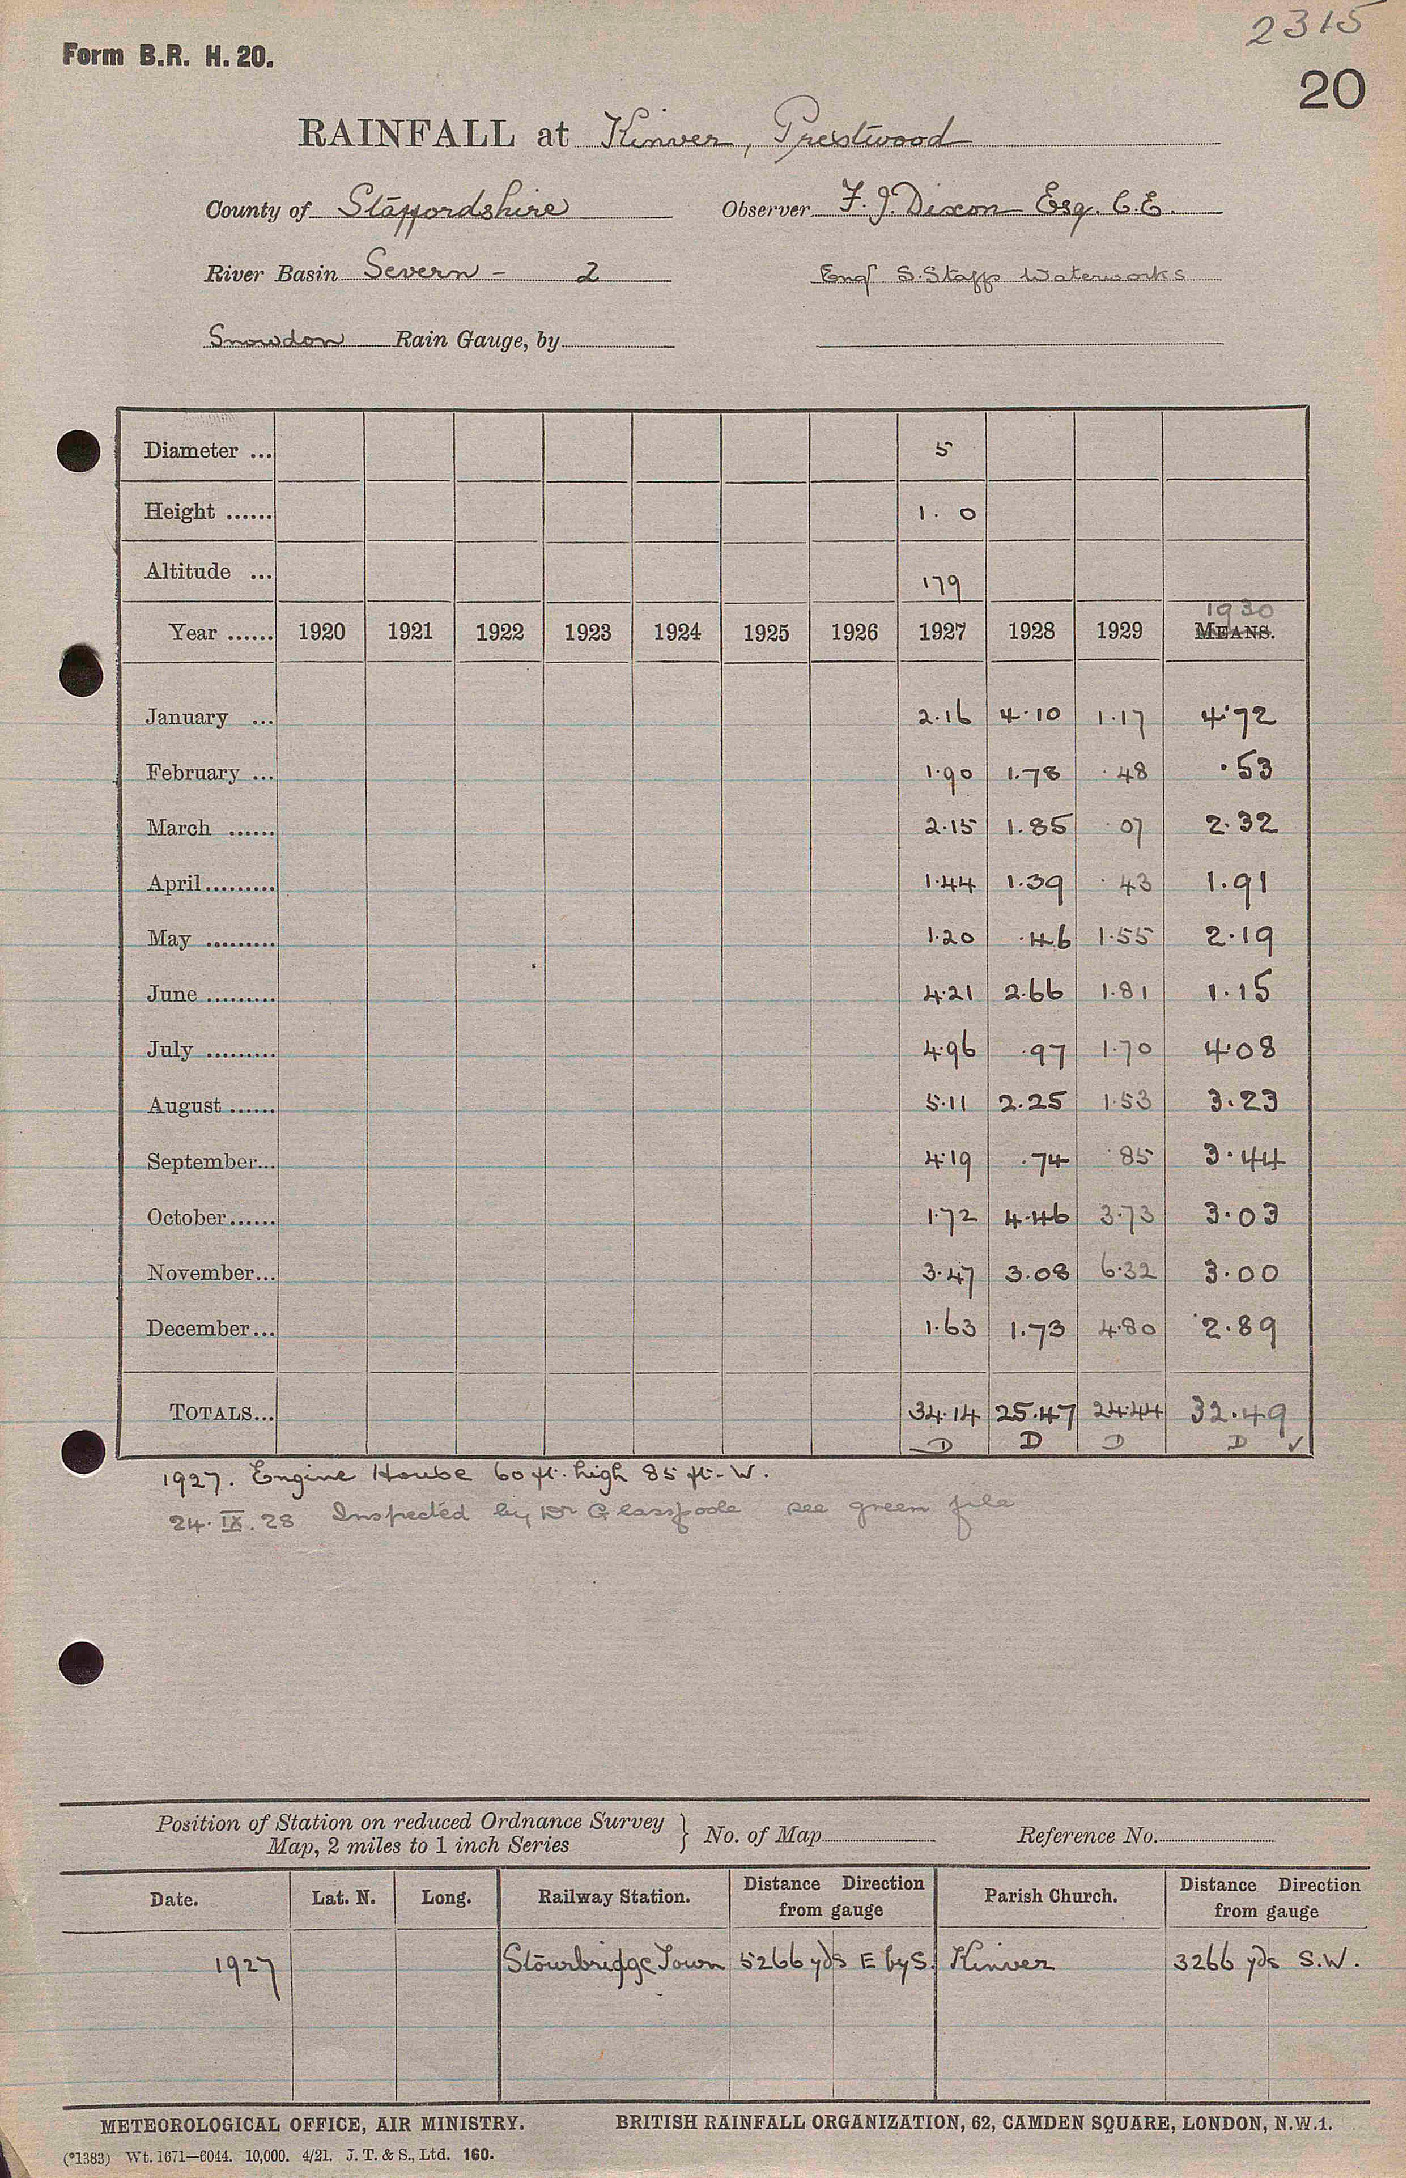 2315
Form B.R. H. 20.
20
RAINFALL at Kinver, Prestwood
County of Staffordshire Observer F. J. Dixon Esq. C.E.
River Basin Severn - 2 Engr S. Staffs Waterworks
Snowdon Rain Gauge, by
Diameter ... 5
Height ...... 1. 0
Altitude ... 179
1930
Year ...... 1920 1921 1922 1923 1924 1925 1926 1927 1928 1929 MEANS.
January ... 2.16 4.10 1.17 4.72
February ... 1.90 1.78 .48 .53
March ...... 2.15 1.85 .07 2.32
April ......... 1.44 1.39 .43 1.91
May ......... 1.20 .46 1.55 2.19
June ......... 4.21 2.66 1.81 1.15
July ......... 4.96 .97 1.70 4.08
August ...... 5.11 2.25 1.53 3.23
September... 4.19 .74 .85 3.44
October ...... 1.72 4.46 3.73 3.03
November... 3.47 3.08 6.32 3.00
December... 1.63 1.73 4.80 2.89
TOTALS... 34.14 25.47 24.44 32.49
D D D D ✓
1927. Engine House 60 ft. high 85 ft. W.
24. IX. 28 Inspected by Dr Glasspoole see green file
Position of Station on reduced Ordnance Survey
Map, 2 miles to 1 inch Series } No. of Map Reference No.
Date. Lat. N. Long. Railway Station. Distance Direction from gauge Parish Church. Distance Direction from gauge
1927 Stourbridge Town 5266 yds E by S. Kinver 3266 yds S.W.
METEOROLOGICAL OFFICE, AIR MINISTRY. BRITISH RAINFALL ORGANIZATION, 62, CAMDEN SQUARE, LONDON, N.W.1.
(*1383) Wt. 1671—6044. 10,000. 4/21. J. T. & S., Ltd. 160.